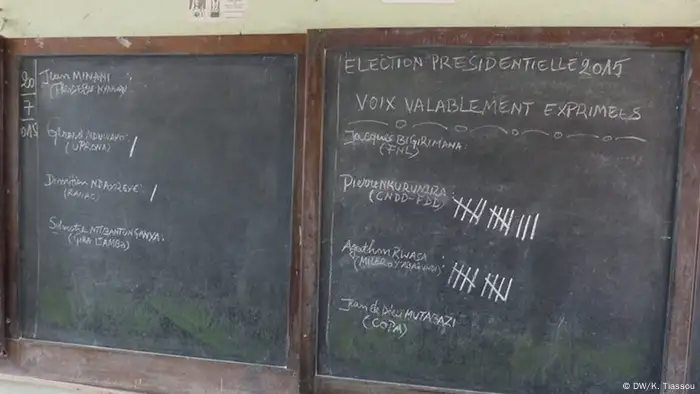 20
7
015
Jean MINANI :
Gérard NDUWAYO :
(UPRONA)
Domitien NDAYIZEYE :
(RANAC)
Sylvestre NTIBANTUNGANYA :
ELECTION PRESIDENTIELLE 2015
VOIX VALABLEMENT EXPRIMEES
Jacques BIGIRIMANA :
(FNL)
Pierre NKURUNZIZA :
(CNDD-FDD)
Agathon RWASA :
Jean de Dieu MUTABAZI
(COPA)
© DW/K. Tiassou